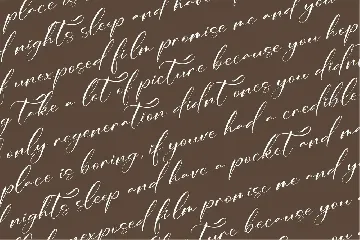 place is
nights sleep and have
unexposed film promise me and you
take a lot of picture because you kep
only regeneration didnt ones you didn
place is boring, if youve had a credible
nights sleep and have a pocket and m
unexposed film promise me and y
picture because you